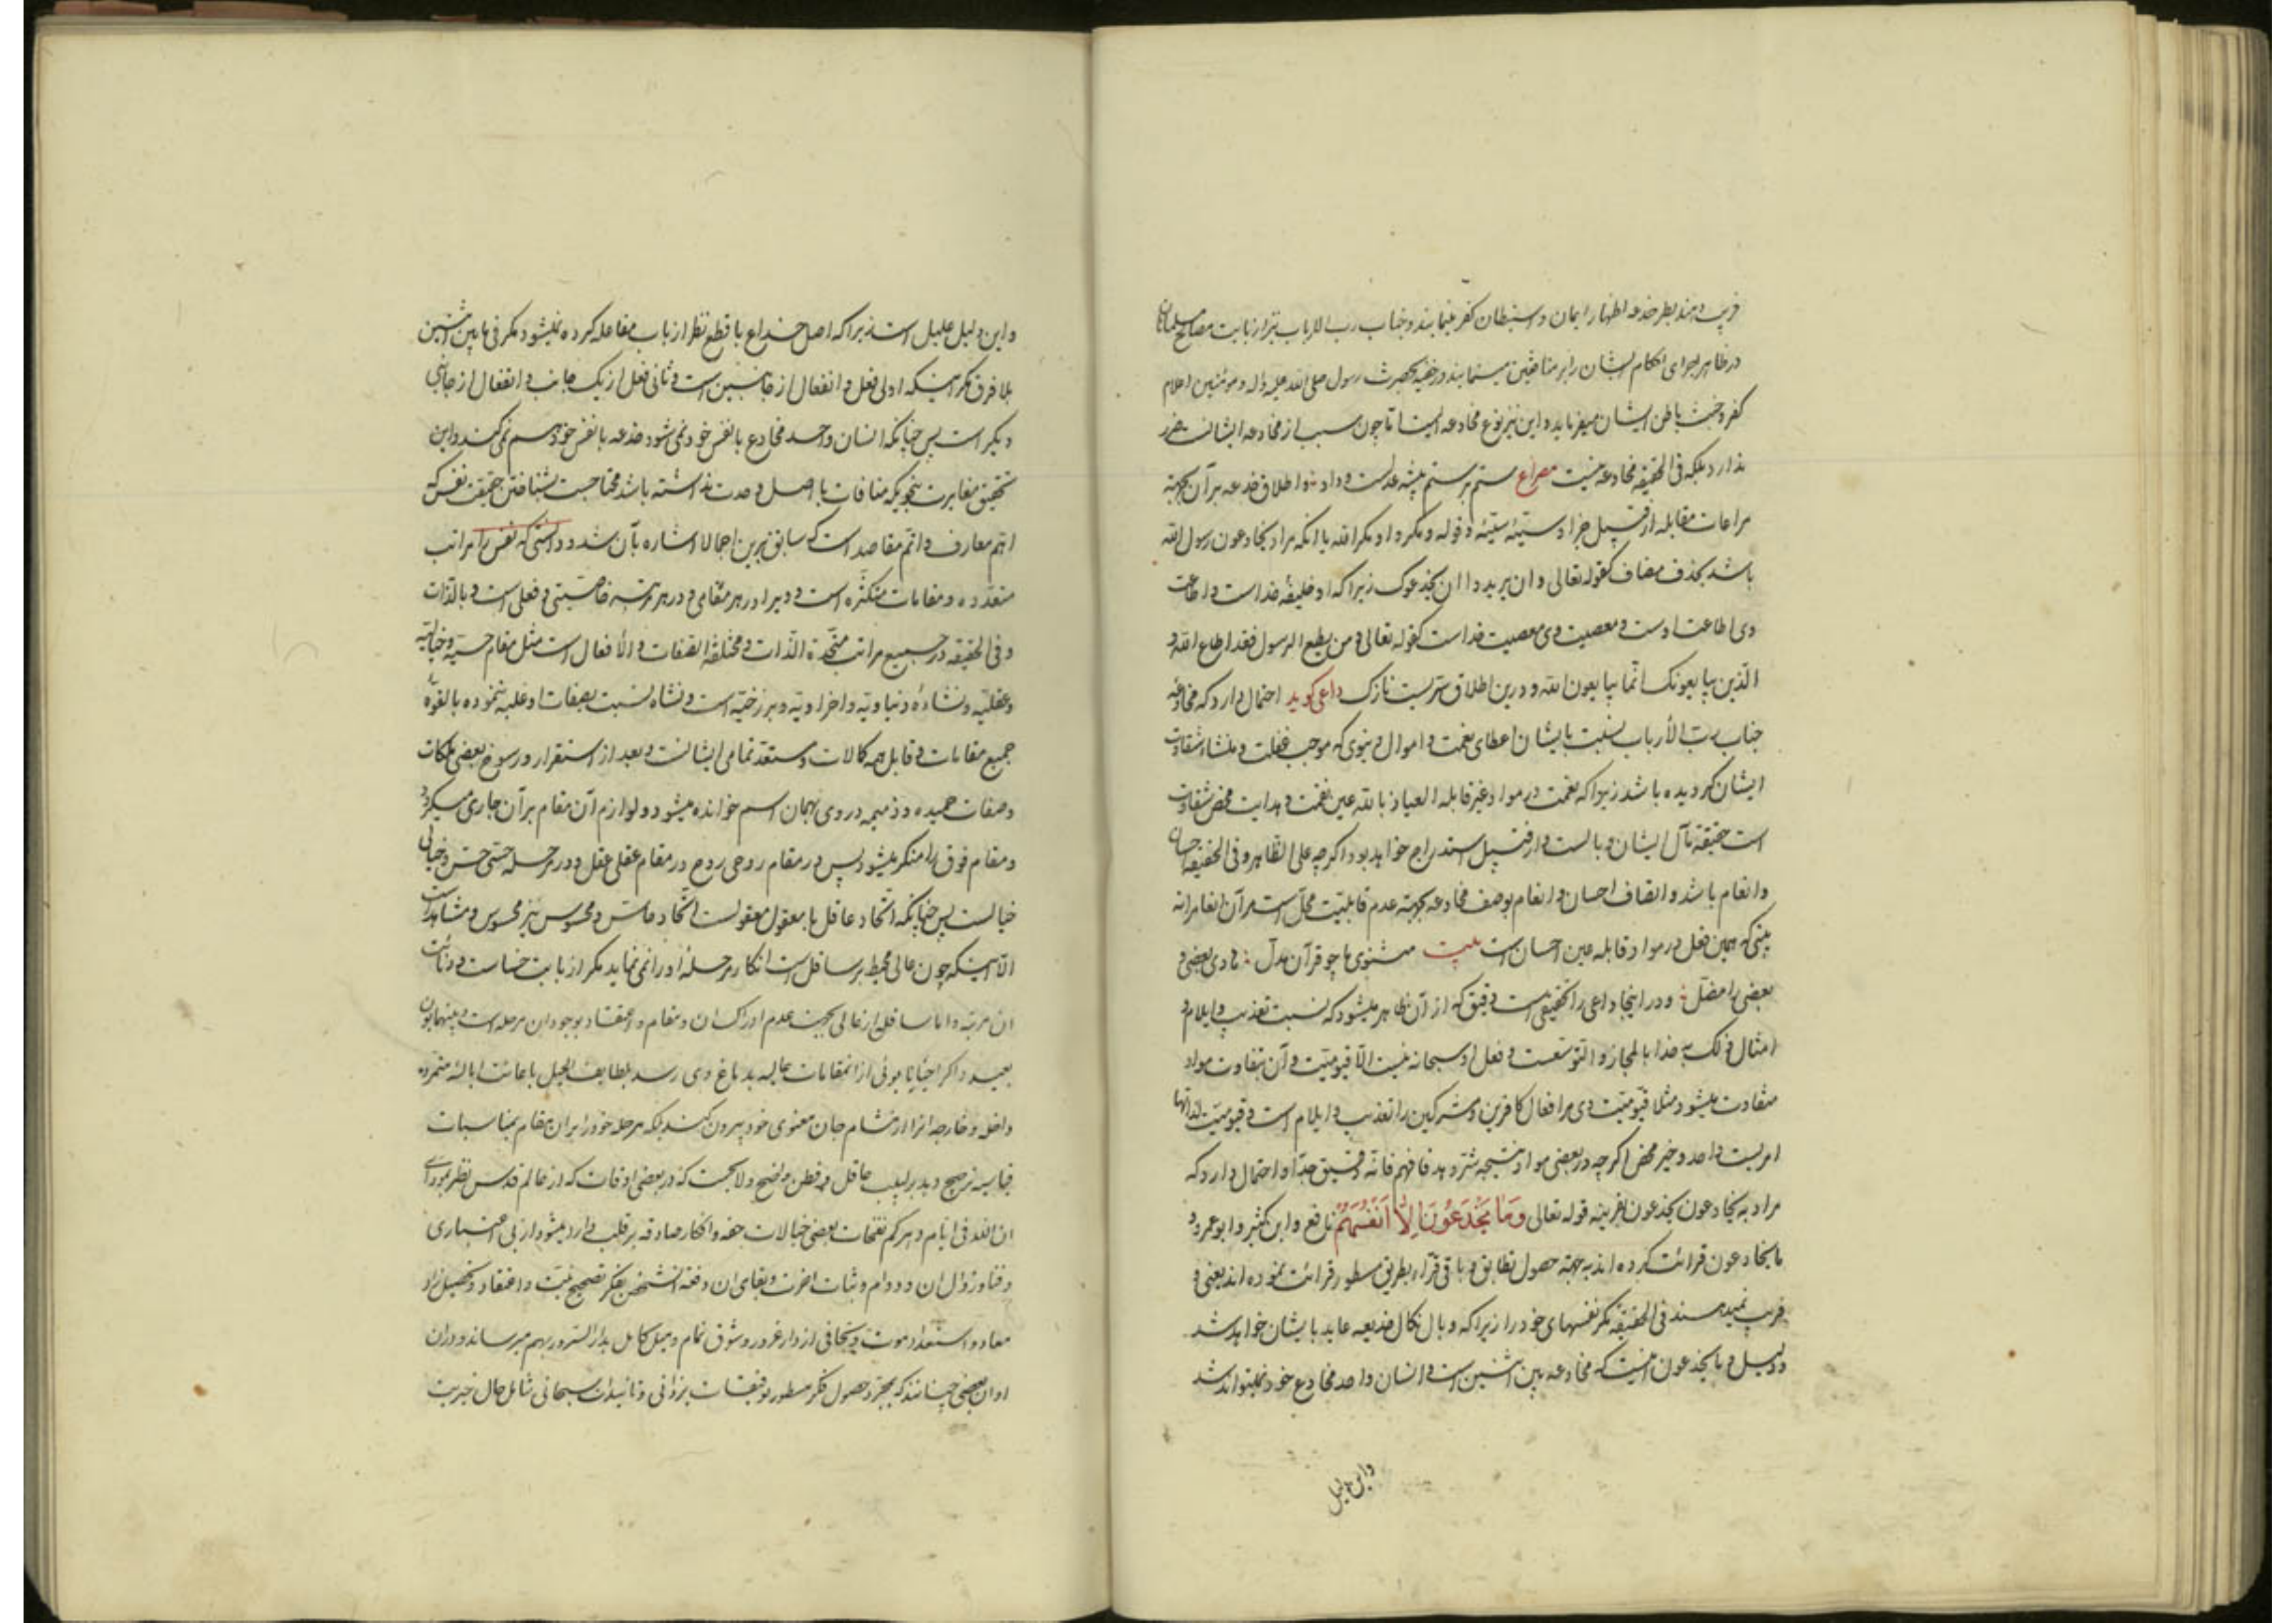 فریب دهند بطور خدعه اظهار ایمان و استبطان کفر مینمایند و جناب رب الارباب نیز از بابت مصالح مسلمانان
در ظاهر اجرای احکام ایشان را بر منافقین مینمایند و در خفیه بحضرت رسول صلی الله علیه و آله و مومنین اعلام
کفر و خبث باطن ایشان میفرماید و این نیز نوع مخادعه ایست اما چون مسبب از مخادعه ایشانست ضرر
ندارد بلکه فی الحقیقه مخادعه نیست مصراع ستم بر ستم پیشه عدلست و داد و اطلاق خدعه بر آن بجهته
مراعات مقابله از قبیل جزاء سیئة سیئة و قوله و مکروا و مکر الله یا انکه مراد یخادعون رسول الله
باشد بحذف مضاف کقوله تعالی و ان یریدوا ان یخدعوک زیرا که او خلیفهٔ خداست و اطاعت
وی اطاعت اوست و معصیت وی معصیت خداست کقوله تعالی و من یطع الرسول فقد اطاع الله و
الذین یبایعونک انما یبایعون الله و درین اطلاق سریست نازک داعی کوید احتمال دارد که مخادعهٔ
جناب رب الأرباب نسبت بایشان اعطای نعمت و اموال دنیوی که موجب غفلت و منشاء شقاوت
ایشان کردیده باشد زیرا که نعمت در مواد غیر قابله العیاذ بالله عین نقمت و هدایت محض شقاوت
است حقیقة مآل ایشان وبالست و از قبیل استدراج خواهد بود اکرچه علی الظاهر و فی الحقیقه احسان
و انعام باشد و اتصاف احسان و انعام بوصف مخادعه بجهته عدم قابلیت محل است مر آن انعام را نه
بینی که همین فعل در مواد قابله عین احسان است بیت مثنوی ما چو قرآن مدل هادی بعضی و
بعضی را مضل و در اینجا داعی را تحقیقی است دقیق که از آن ظاهر میشود که نسبت تعذیب و ایلام و
امثال ذلک به خدا بالمجاز و التوسعست و فعل او سبحانه نیست الا قیومیت و آن بتفاوت مواد
متفاوت میشود مثلا قیومیت وی مر افعال کافرین و مشرکین را تعذیب و ایلام است و قیومیت لذاتها
امریست واحد و خیر محض اکرچه در بعضی مواد نتیجه شر دهد فافهم فانه دقیق جدا و احتمال دارد که
مراد به یخادعون یخدعون بقرینه قوله تعالی وَمَا یَخْدَعُونَ اِلاّٰ اَنْفُسَهُمْ نافع و ابن کثیر و ابو عمرو و
ما یخادعون قرائت کرده اند به جهته حصول تطابق و باقی قرآء بطریق مسطور قرائت نموده اند یعنی و
فریب نمیدهند فی الحقیقه مکر نفسهای خود را زیرا که وبال و نکال خدیعه عاید بایشان خواهد شد
و دلیل و ما یخدعون اینست که مخادعه بین اثنین است و انسان واحد مخادع خود نمیتواند شد
واین دلیل
واین دلیل علیل است زیرا که اصل خداع با قطع نظر از باب مفاعله کرده نمیشود مکر فی مابین اثنین
بلا فرق مکر اینکه اولی فعل و انفعال از جانبین است و ثانی فعل از یک جانب و انفعال از جانبی
دیکر است پس چنانکه انسان واحد مخادع با نفس خود نمی شود خدعه با نفس خود هم نمی کند و این
تحقیق مغایرت بنحویکه منافات با اصل وحدت نداشته باشد محتاجست بشناختن حقیقت نفس که
اهم معارف و اتم مقاصد است که سابق برین اجمالا اشاره بآن شد و دانستی که نفس را مراتب
متعدده و مقامات متکثره است و ویرا در هر مقامی و در هر مرتبه خاصیتی و فعلی است و بالذات
و فی الحقیقه در جمیع مراتب متحدة الذات و مختلفة الصفات و الأفعال است مثل مقام حسیه و خیالیه
و عقلیه و نشاءهٔ دنیاویه و اخراویه و برزخیه است و نشاه نسبت بصفات او غلبه ننموده بالقوهٔ
جمیع مقامات و قابل همه کالات و مستعد تمامی ایشانست و بعد از استقرار و رسوخ بعضی ملکات
و صفات حمیده و ذمیمه در وی بهمان اسم خوانده میشود و لوازم آن مقام بر آن جاری میکردد
و مقام فوق را منکر میشود پس در مقام روحی روح در مقام عقلی عقل و در مرحله حسی حس و خیالی
خیالست پس چنانکه اتحاد عاقل با معقول معقولست اتحاد حاس و محسوس نیز محسوس و مشاهد است
الا اینکه چون عالی محیط بر سافل است انکار مرحلهٔ او را نمی نماید مکر از بابت خساست و دنائت
ان مرتبه و اما سافل از عالی بجهت عدم ادراک ان مقام و اعتقاد بوجود ان مرحله است و بینهما بون
بعید و اکر احیانا بوئی از انمقامات عالیه بدماغ وی رسد بلطایف الحیل باعانت ابالسهٔ متمرده
داخله و خارجه انرا از مشام جان معنوی خود بیرون کند بلکه مرحله خود را بر ان مقام بمناسبات
قیاسیه ترجیح دهد بر لبیب عاقل و فطن واضح و لایحست که در بعضی اوقات که از عالم قدس نظر بمودای
ان لله فی ایام دهرکم نفحات بعضی خیالات حقه و افکار صادقه بر قلب وارد میشود از بی اعتباری
و فنا و زوال ان و دوام و ثبات اخرت و بقای ان دفعة انشخص بفکر تصحیح نیت و اعتقاد و تحصیل زاد
معاد و استعداد موت و تجافی از دار غرور و شوق تمام و میل کامل بدار السرور بهم میرساند و در ان
اوان بعضی چنانند که بمجرد حصول فکر مسطور توفیقات یزدانی و تائیدات سبحانی شامل حال خیریت